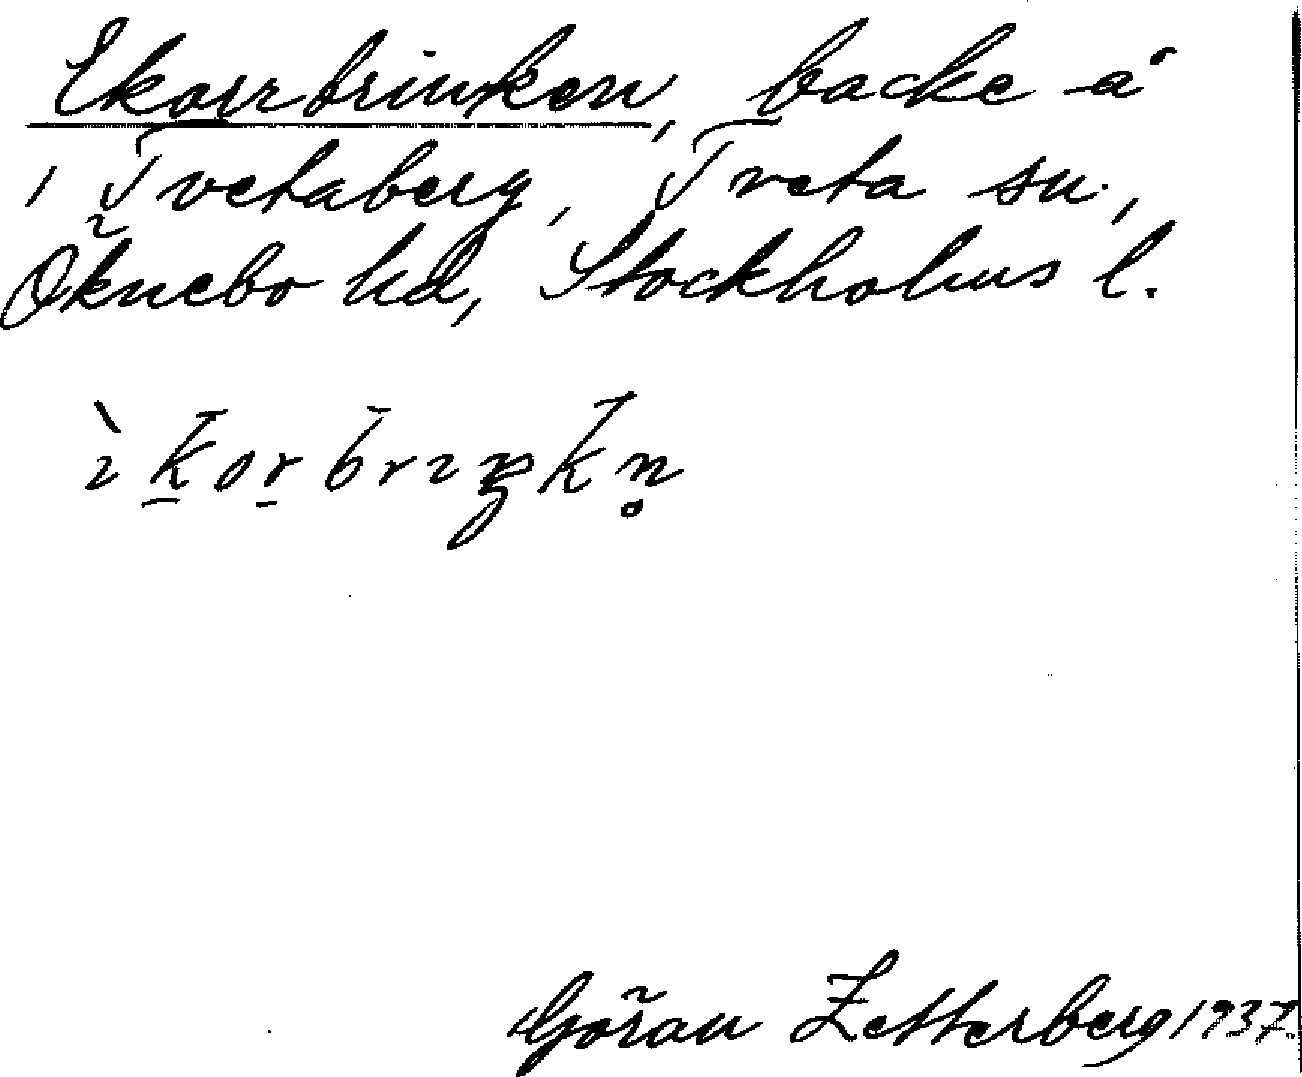 Ekorrbrinken, backe å
1 Tvetaberg, Tveta sn.,
Öknebo hd, Stockholms l.
Göran Zetterberg 1937.